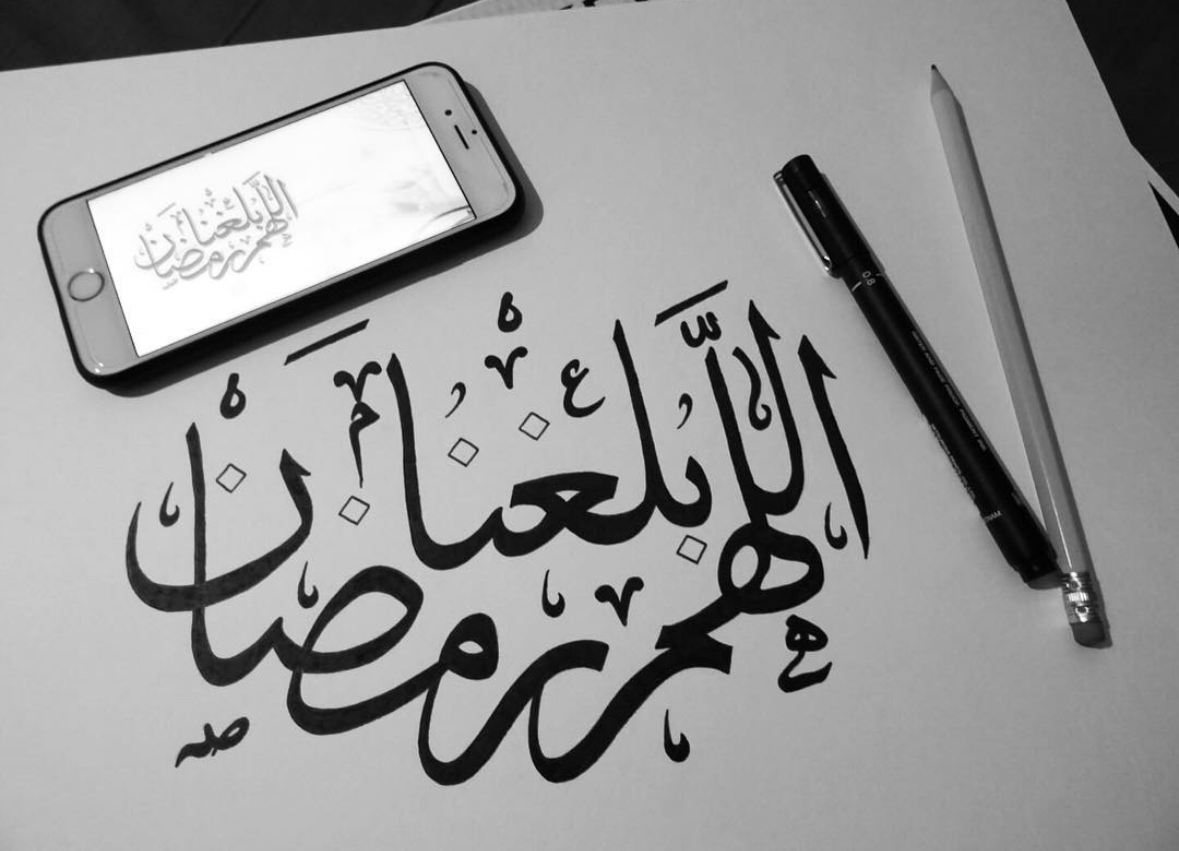 اللهم بلغنا رمضان
اللهم بلغنا رمضان
0.8